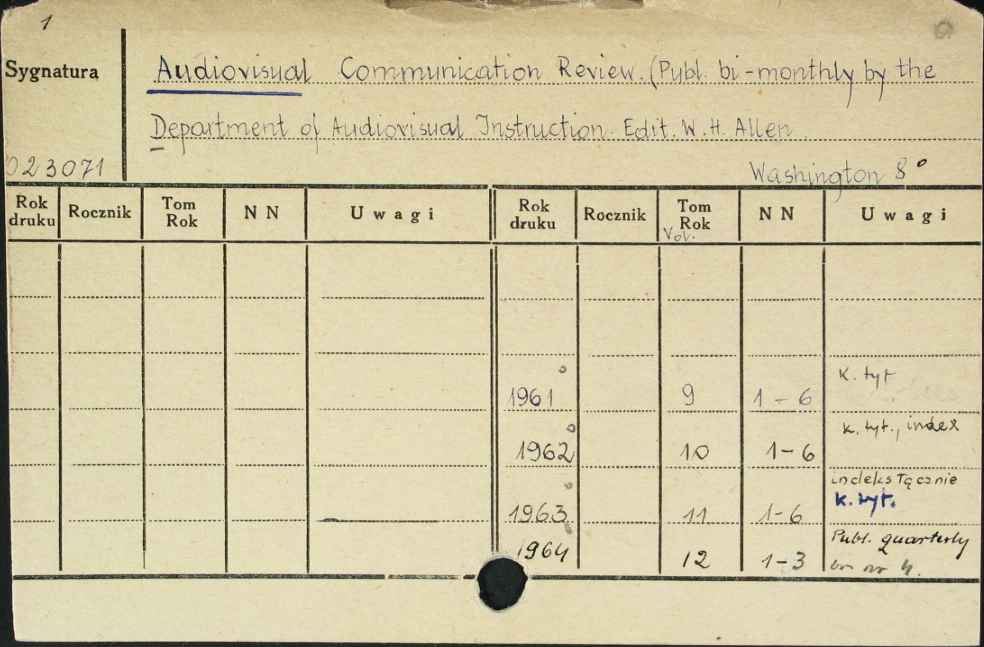 1
Sygnatura
Audiovisual Communication Review. (Publ. bi-monthly by the
Department of Audiovisual Instruction. Edit. W.H. Allen
023071
Washington 8°
Rok druku Rocznik Tom Rok NN Uwagi Rok druku Rocznik Tom Rok NN Uwagi
Vol.
1961 9 1-6 K. tyt
1962 10 1-6 k. tyt., index
1963 11 1-6 indeks łącznie
k. tyt.
1964 12 1-3 Publ. quarterly
nr 4.